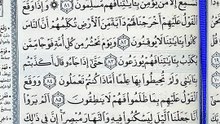 تُسْمِعُ إِلَّا مَن يُؤْمِنُ بِـَٔايَٰتِنَا فَهُم مُّسْلِمُونَ ٨١ ۞ وَإِذَا وَقَعَ
ٱلْقَوْلُ عَلَيْهِمْ أَخْرَجْنَا لَهُمْ دَآبَّةً مِّنَ ٱلْأَرْضِ تُكَلِّمُهُمْ أَنَّ ٱلنَّاسَ
كَانُوا۟ بِـَٔايَٰتِنَا لَا يُوقِنُونَ ٨٢ وَيَوْمَ نَحْشُرُ مِن كُلِّ أُمَّةٍ فَوْجًا مِّمَّن
يُكَذِّبُ بِـَٔايَٰتِنَا فَهُمْ يُوزَعُونَ ٨٣ حَتَّىٰٓ إِذَا جَآءُو قَالَ أَكَذَّبْتُم
بِـَٔايَٰتِى وَلَمْ تُحِيطُوا۟ بِهَا عِلْمًا أَمَّاذَا كُنتُمْ تَعْمَلُونَ ٨٤ وَوَقَعَ
ٱلْقَوْلُ عَلَيْهِم بِمَا ظَلَمُوا۟ فَهُمْ لَا يَنطِقُونَ ٨٥ أَلَمْ يَرَوْا۟
أَنَّا جَعَلْنَا ٱلَّيْلَ لِيَسْكُنُوا۟ فِيهِ وَٱلنَّهَارَ مُبْصِرًا إِنَّ فِى ذَٰلِكَ